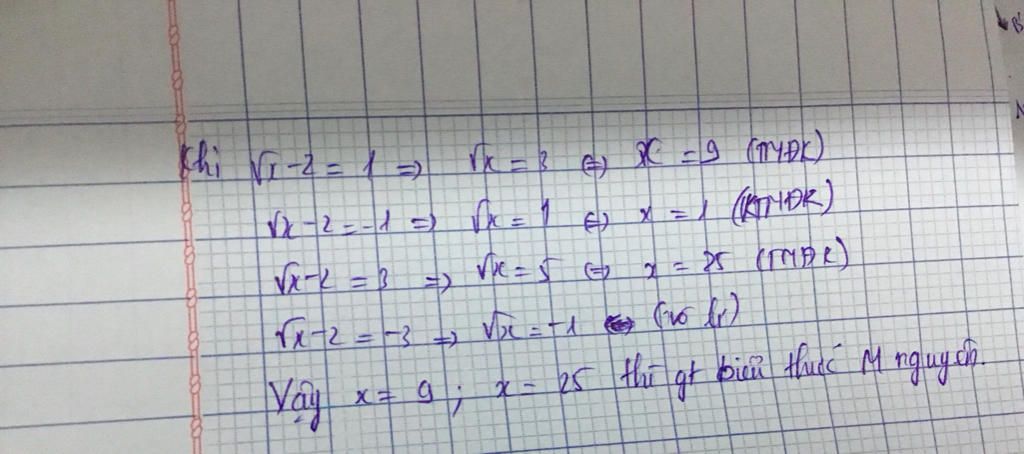 Khi √x - 2 = 1 => √x = 3 <=> x = 9 (TMĐK)
√x - 2 = -1 => √x = 1 <=> x = 1 (KTMĐK)
√x - 2 = 3 => √x = 5 <=> x = 25 (TMĐK)
√x - 2 = -3 => √x = -1 (vô lý)
Vậy x = 9 ; x = 25 thì gt biểu thức M nguyên.